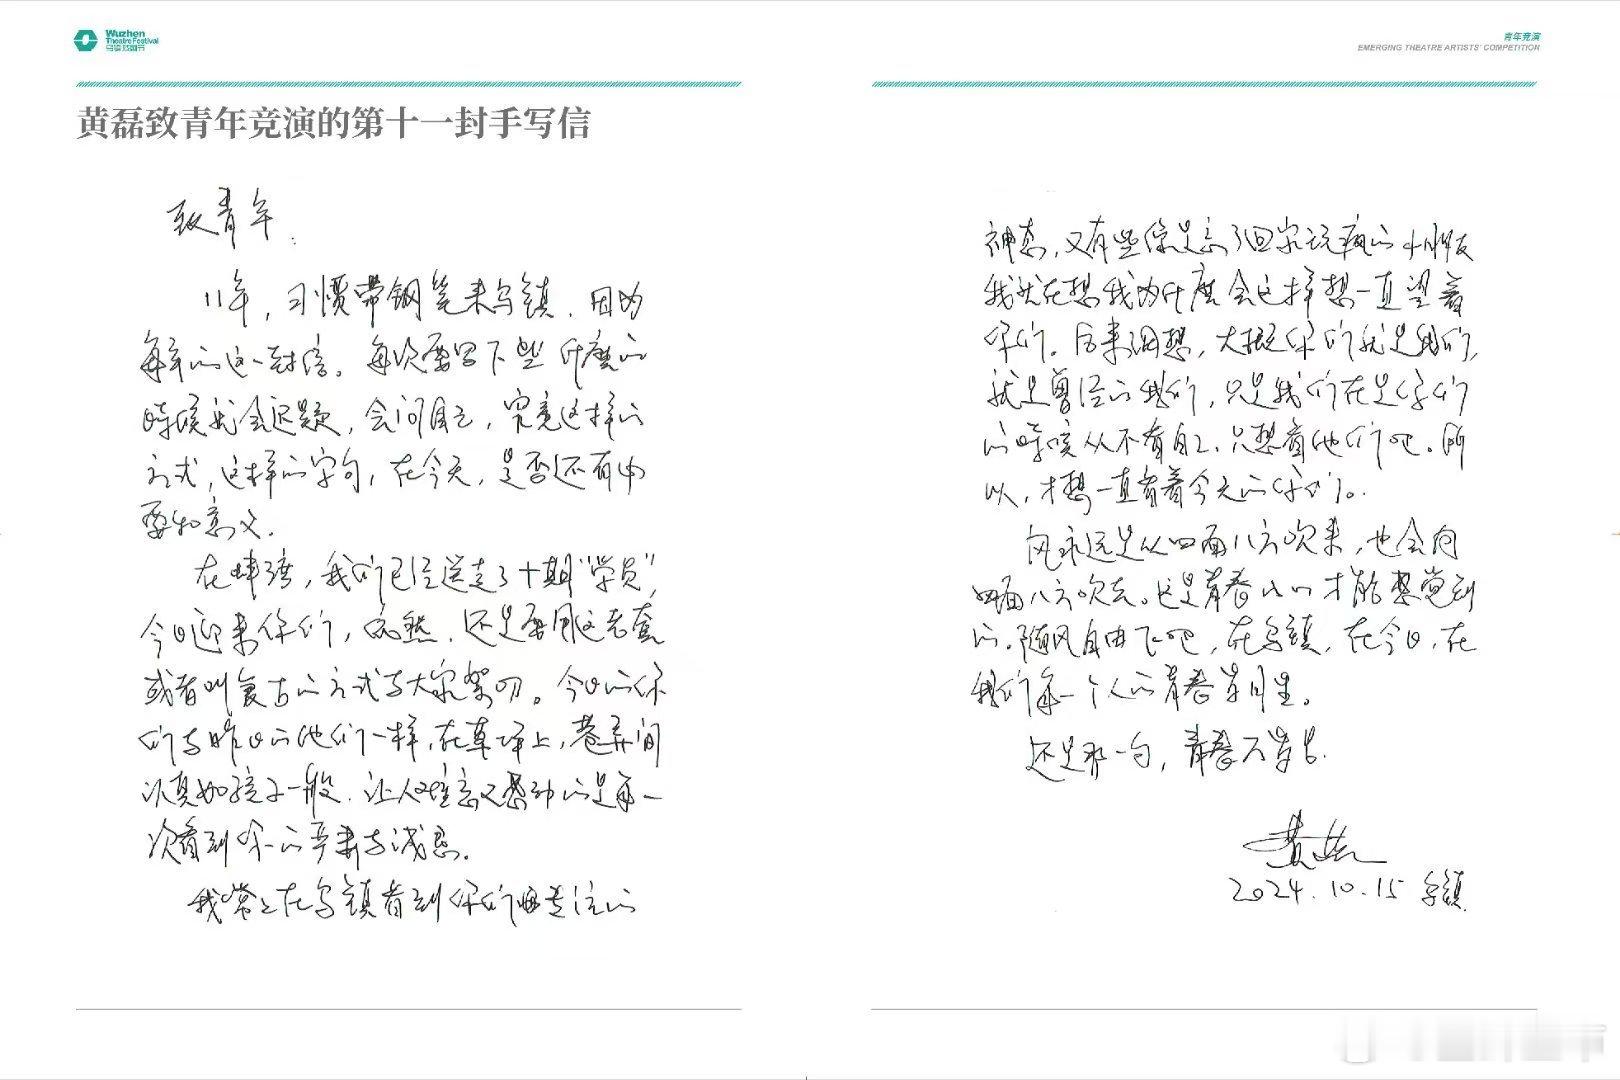 Wuzhen
Theatre Festival
乌镇戏剧节
青年竞演
EMERGING THEATRE ARTISTS' COMPETITION
黄磊致青年竞演的第十一封手写信
致青年：
11年，习惯带钢笔来乌镇，因为
每年的这一封信。每次要写下些什麼的
時候就会迟疑，会问自己，究竟这样的
方式，这样的字句，在今天，是否还有必
要和意义.
在蚌湾，我们已经送走了十期“学员”，
今日迎来你们，依然，还是要用这老套
或者叫复古的方式与大家絮叨。今日的你
们与昨日的他们一样，在草坪上，巷弄间
认真如孩子一般，让人难忘又感动的是每一
次看到你们的严肃与诚恳.
我常常在乌镇看到你们专注的
神态，又有些像是忘了回家玩疯的小朋友
我就在想我为什麼会这样想一直望着
你们。后来细想，大概你们就是我们，
就是曾经的我们，只是我们在是你们
的時候从不看自己，只想看他们吧。所
以，才想一直看着今天的你们。
风永远是从四面八方吹来，也会向
四面八方吹去。这是青春的人才能感觉到
的。随风自由飞吧，在乌镇，在今日，在
我们每一个人的青春岁月里。
还是那一句，青春万岁！
黄磊
2024.10.15 乌镇